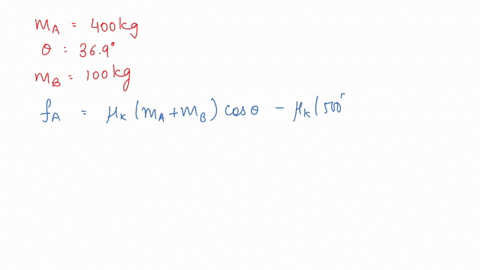 mA = 400kg
θ = 36.9°
mB = 100kg
fA = μk (mA + mB) cosθ - μk (500